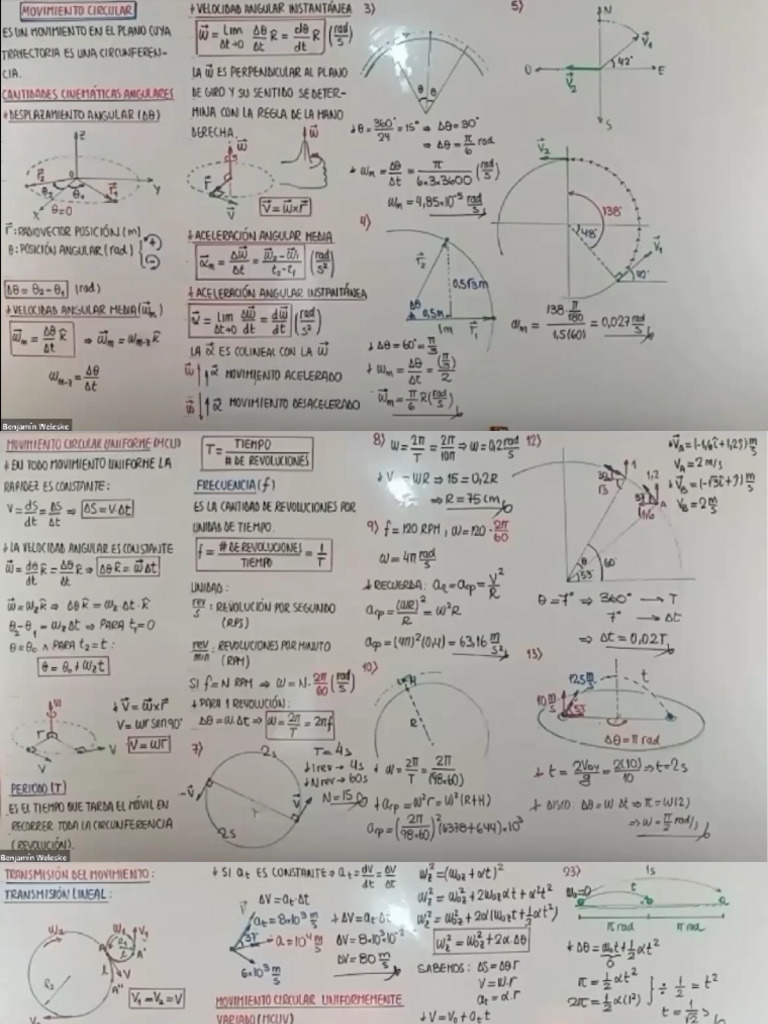 MOVIMIENTO CIRCULAR
ES UN MOVIMIENTO EN EL PLANO CUYA
TRAYECTORIA ES UNA CIRCUNFEREN-
CIA.
CANTIDADES CINEMÁTICAS ANGULARES
↓ DESPLAZAMIENTO ANGULAR (Δθ)
Z
Y
X
θ=0
r⃗: RADIOVECTOR POSICIÓN (m)
θ: POSICIÓN ANGULAR (rad)
Δθ = θ₂-θ₁ (rad)
↓ VELOCIDAD ANGULAR MEDIA (ω⃗m)
ω⃗m = Δθ/Δt k̂ ⇒ ω⃗m = ωm-z k̂
ωm-z = Δθ/Δt
↓ VELOCIDAD ANGULAR INSTANTÁNEA
ω⃗ = Lim Δt→0 Δθ/Δt k̂ = dθ/dt k̂ (rad/s)
LA ω⃗ ES PERPENDICULAR AL PLANO
DE GIRO Y SU SENTIDO SE DETER-
MINA CON LA REGLA DE LA MANO
DERECHA.
V⃗ = ω⃗×r⃗
↓ ACELERACIÓN ANGULAR MEDIA
α⃗m = Δω⃗/Δt = ω⃗₂-ω⃗₁/t₂-t₁ (rad/s²)
↓ ACELERACIÓN ANGULAR INSTANTÁNEA
α⃗ = Lim Δt→0 Δω⃗/dt = dω⃗/dt (rad/s²)
LA α⃗ ES COLINEAL CON LA ω⃗
ω⃗ α⃗ MOVIMIENTO ACELERADO
ω⃗ α⃗ MOVIMIENTO DESACELERADO
3)
θ θ
↓ θ = 360°/24 = 15° ⇒ Δθ = 30°
⇒ Δθ = π/6 rad
↓ ωm = Δθ/Δt = π/6×3×3600 (rad/s)
ωm = 4,85×10⁻⁵ rad/s
4)
r⃗₂
0,5√3m
Δθ
0,5m
1m
r⃗₁
↓ Δθ = 60° = π/3
↓ ωm = Δθ/Δt = (π/3)/2
ω⃗m = π/6 k̂ (rad/s)
5)
N
V⃗₁
42°
O
E
V⃗₂
S
V⃗₂
138°
48°
V⃗₁
ωm = 138·π/180 / 1,5(60) = 0,027 rad/s
Benjamín Weleske
MOVIMIENTO CIRCULAR UNIFORME (MCU)
↓ EN TODO MOVIMIENTO UNIFORME LA
RAPIDEZ ES CONSTANTE:
V = dS/dt = ΔS/Δt ⇒ ΔS = V·Δt
↓ LA VELOCIDAD ANGULAR ES CONSTANTE
ω⃗ = dθ/dt k̂ = Δθ/Δt k̂ ⇒ Δθ k̂ = ω⃗ Δt
ω⃗ = ωz k̂ ⇒ Δθ k̂ = ωz·Δt·k̂
θ₂-θ₁ = ωz Δt ⇒ PARA t₁=0
θ = θ₀ ∧ PARA t₂ = t:
θ = θ₀ + ωz t
↓ V⃗ = ω⃗×r⃗
V = ωr sen90°
V = ωr
PERIODO (T)
ES EL TIEMPO QUE TARDA EL MÓVIL EN
RECORRER TODA LA CIRCUNFERENCIA
(REVOLUCIÓN).
T = TIEMPO/# DE REVOLUCIONES
FRECUENCIA (f)
ES LA CANTIDAD DE REVOLUCIONES POR
UNIDAD DE TIEMPO.
f = # DE REVOLUCIONES/TIEMPO = 1/T
UNIDAD:
rev/s: REVOLUCIÓN POR SEGUNDO
(RPS)
rev/min: REVOLUCIONES POR MINUTO
(RPM)
SI f = N RPM ⇒ ω = N·2π/60 (rad/s)
↓ PARA 1 REVOLUCIÓN:
Δθ = ω·Δt ⇒ ω = 2π/T = 2πf
7)
2s
T = 4s
↓ 1 rev → 4s
↓ N rev → 60s
N = 15
-V⃗
r
V⃗
2s
8) ω = 2π/T = 2π/10π ⇒ ω = 0,2 rad/s
↓ V = ωR ⇒ 15 = 0,2R
⇒ R = 75 cm
9) f = 120 RPM, ω = 120·2π/60
ω = 4π rad/s
↓ RECUERDA: ac = acp = V²/R
acp = (ωR)²/R = ω²R
acp = (4π)²(0,4) = 63,16 m/s²
10)
H
R
↓ ω = 2π/T = 2π/(98×60)
↓ acp = ω²r = ω²(R+H)
acp = (2π/98×60)²(6378+644)×10³
12)
1
√3
1,2
37
A
1,6
θ
53°
60°
↓ V⃗A = (-1,6î+1,2ĵ) m/s
VA = 2 m/s
↓ V⃗B = (-√3î+ĵ) m/s
VB = 2 m/s
θ = 7° ⇒ 360° → T
7° → Δt
⇒ Δt = 0,02T
13)
12,5 m/s
t
10 m/s
53°
Δθ = π rad
↓ t = 2Voy/g = 2(10)/10 ⇒ t = 2s
↓ DISCO: Δθ = ω·Δt ⇒ π = ω(2)
⇒ ω = π/2 rad/s
Benjamín Weleske
TRANSMISIÓN DEL MOVIMIENTO:
TRANSMISIÓN LINEAL:
V₁ = V₂ = V
↓ SI at ES CONSTANTE ⇒ at = dV/dt = ΔV/Δt
ΔV = at·Δt
at = 8×10³ m/s
↓ ΔV = at·Δt
37
a = 10⁴ m/s
ΔV = 8×10³×10⁻²
ΔV = 80 m/s
6×10³ m/s
MOVIMIENTO CIRCULAR UNIFORMEMENTE
VARIADO (MCUV)
ωz² = (ω₀z + αt)²
ωz² = ω₀z² + 2ω₀zαt + α²t²
ωz² = ω₀z² + 2α(ω₀zt + ½αt²)
ωz² = ω₀z² + 2αΔθ
SABEMOS: ΔS = Δθr
V = ω·r
at = α·r
↓ V = V₀ + at t
23)
1s
ω₀=0
t
π rad
π rad
↓ Δθ = ω₀t + ½αt²
0
π = ½αt²
2π = ½α(1²)
÷ ½ = t²
t = 1/√2 s